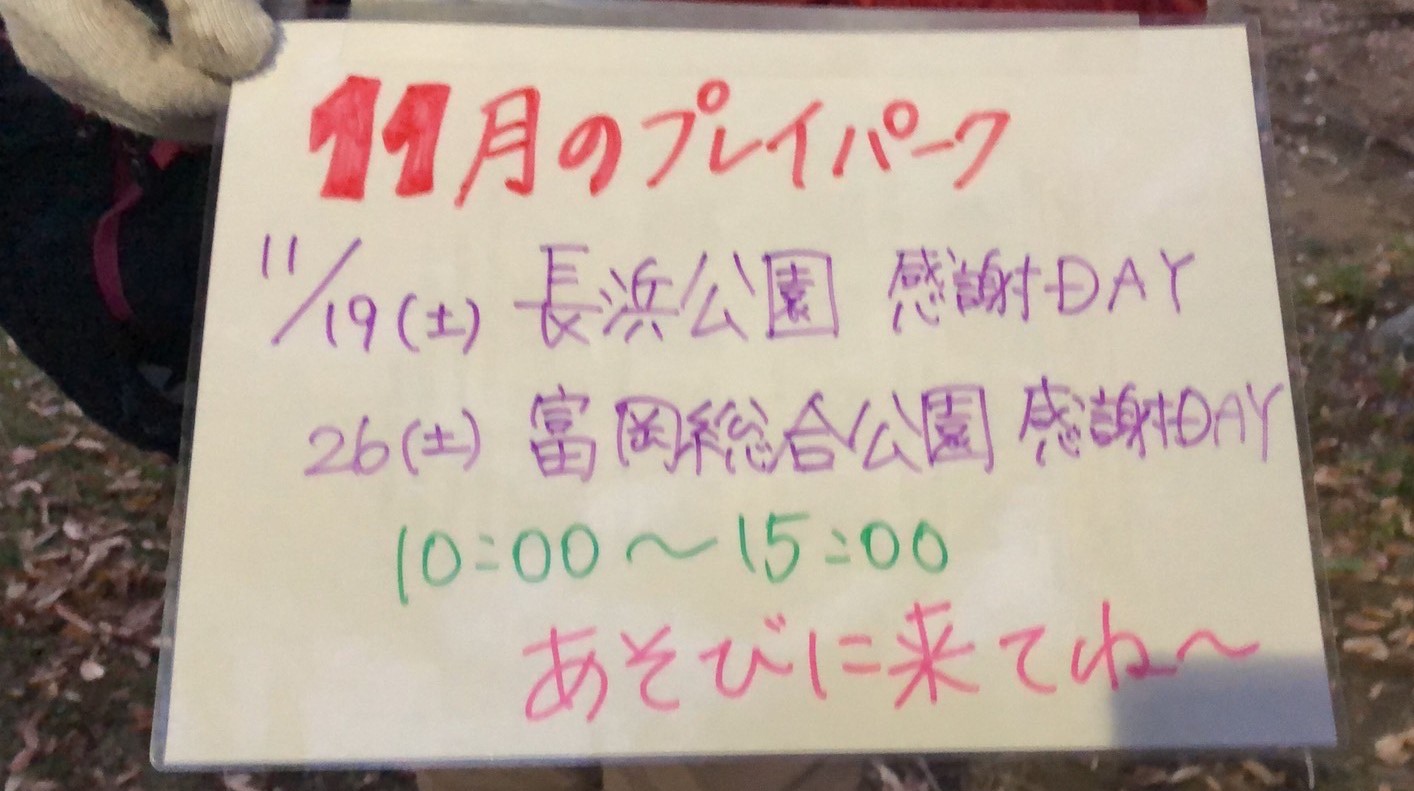 11月のプレイパーク
11/19(土) 長浜公園 感謝DAY
26(土) 富岡総合公園 感謝DAY
10:00〜15:00
あそびに来てね〜